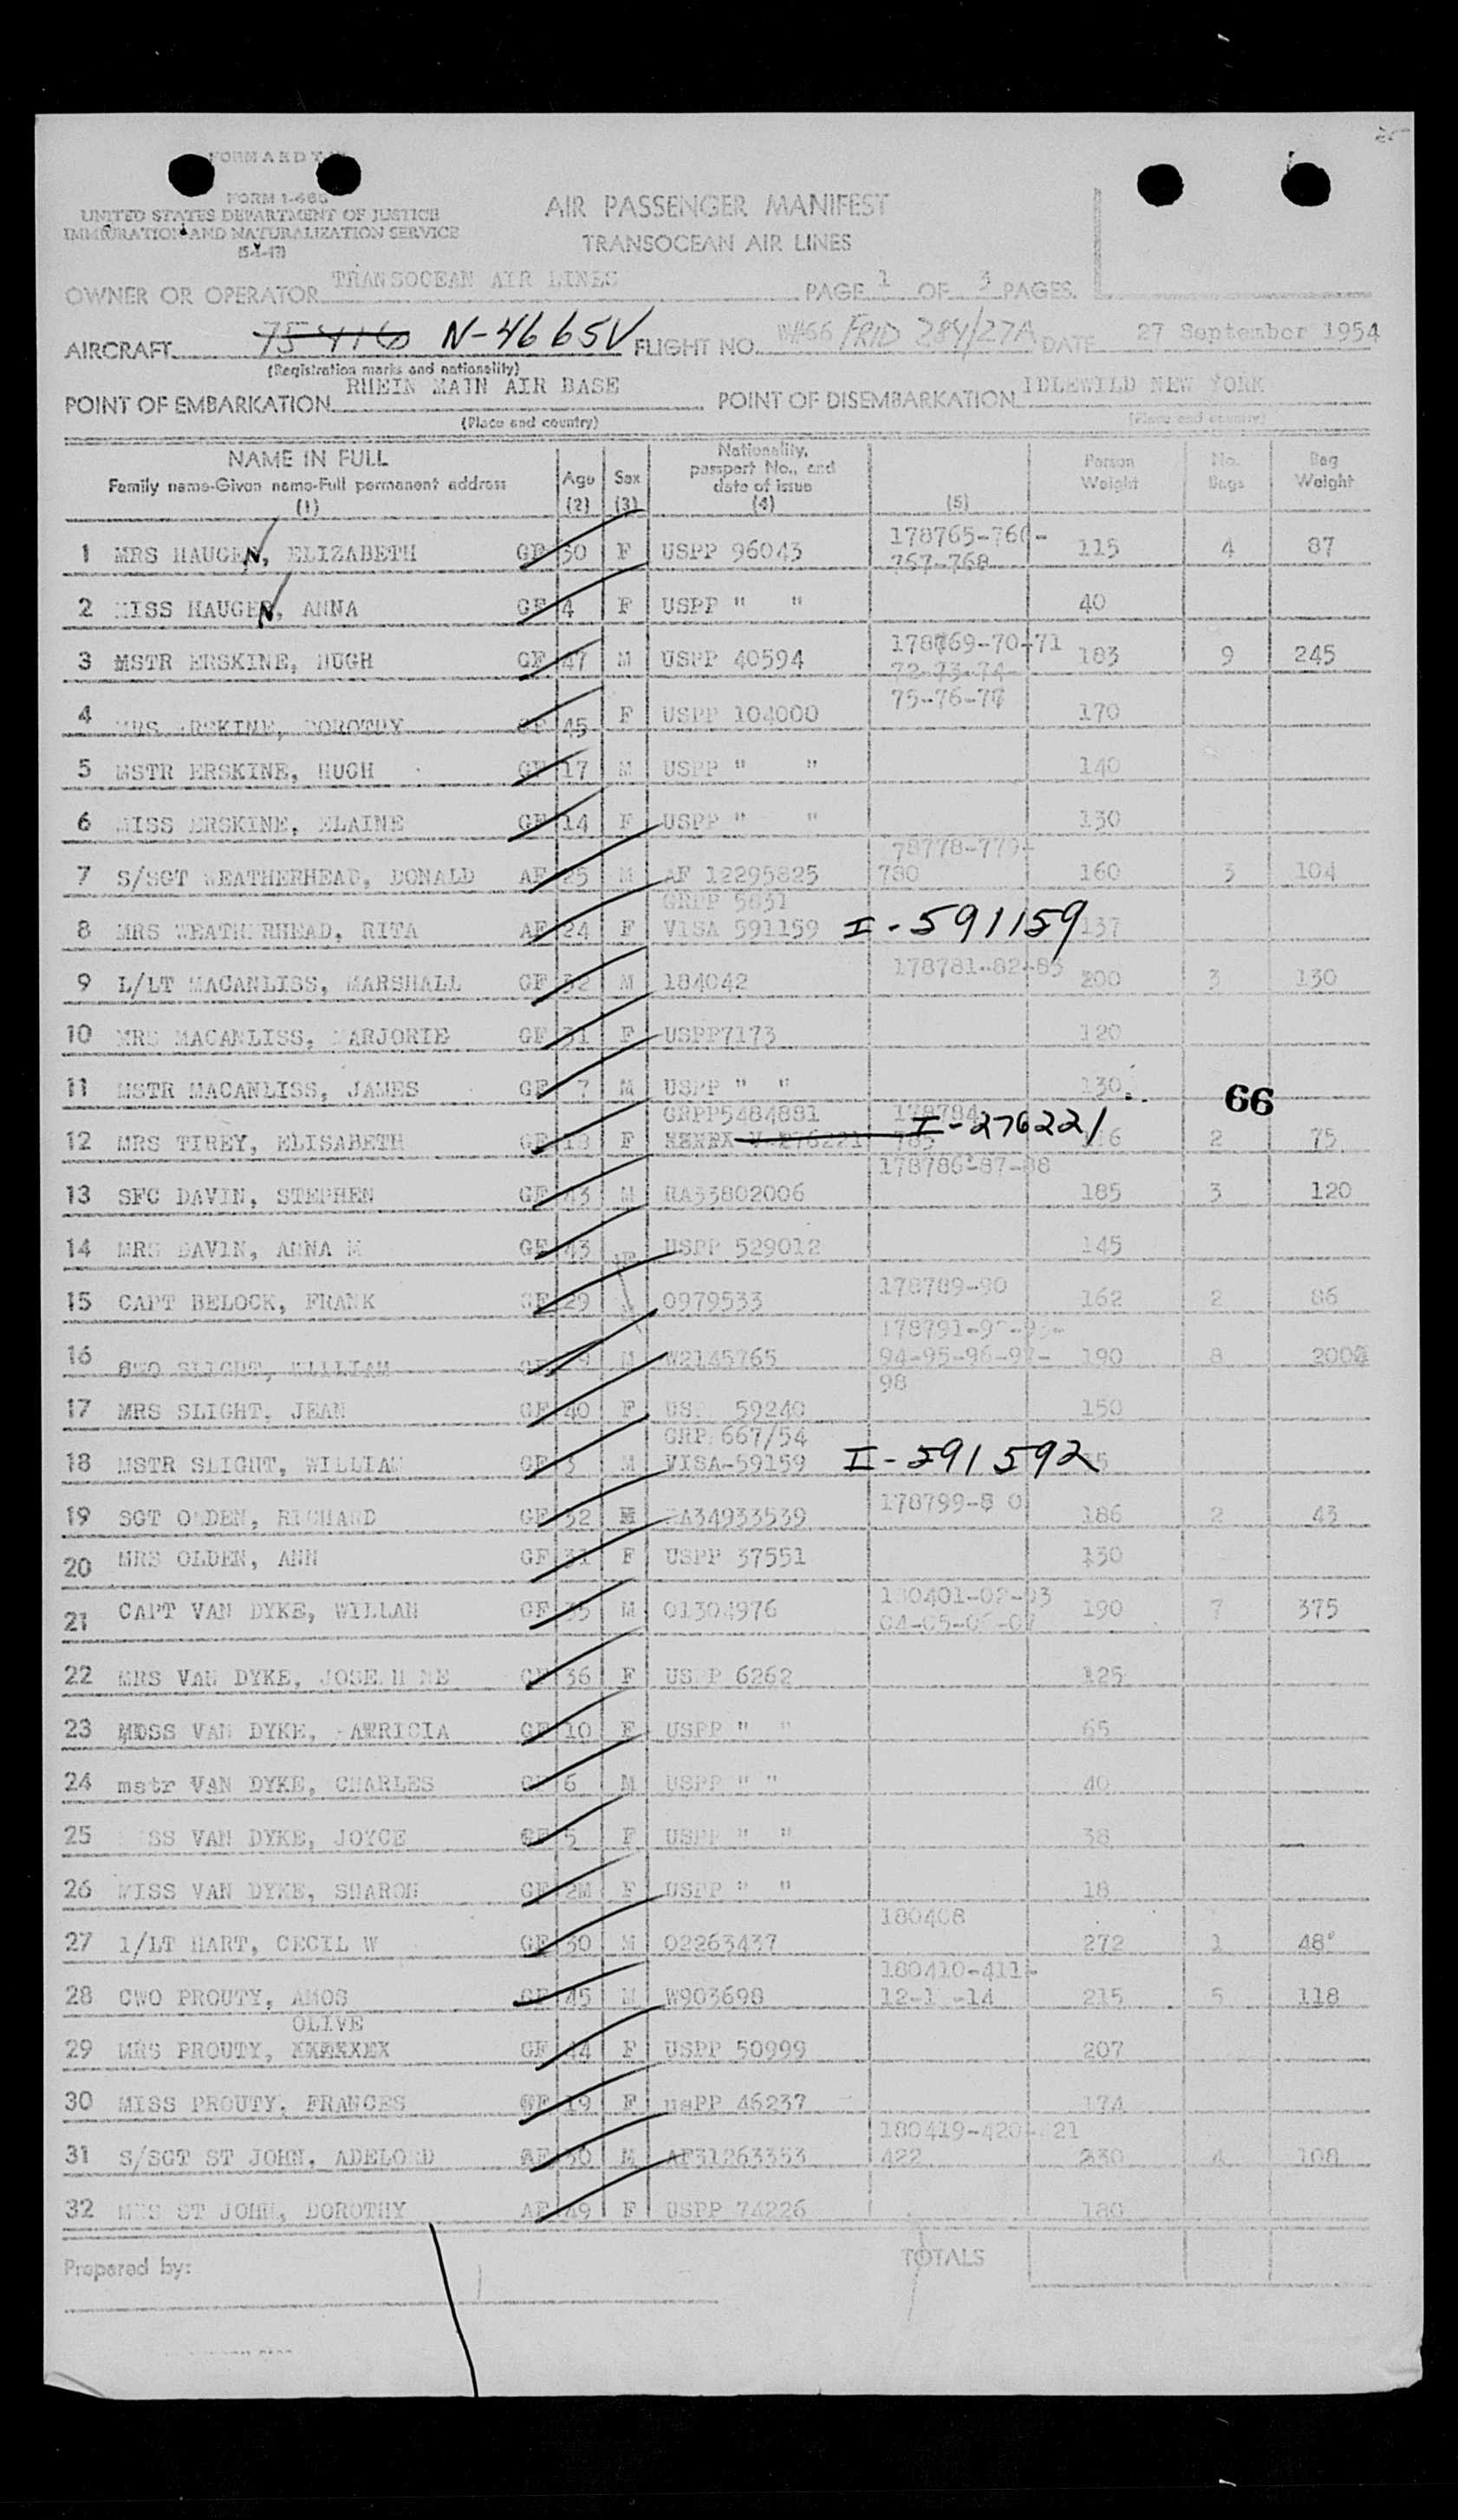 FORM I-466
UNITED STATES DEPARTMENT OF JUSTICE
IMMIGRATION AND NATURALIZATION SERVICE
AIR PASSENGER MANIFEST
TRANSOCEAN AIR LINES
OWNER OR OPERATOR TRANSOCEAN AIR LINES PAGE 1 OF 3 PAGES.
AIRCRAFT N-4665V FLIGHT NO. FRID 284/27A DATE 27 September 1954
(Registration marks and nationality)
POINT OF EMBARKATION RHEIN MAIN AIR BASE POINT OF DISEMBARKATION IDLEWILD NEW YORK
(Place and country) (Place and country)
NAME IN FULL Age Sex Nationality, passport No., and date of issue Person Weight No. Bags Bag Weight
Family name-Given name-Full permanent address
(1) (2) (3) (4) (5)
178765-766-
1 MRS HAUGEN, ELIZABETH GF 30 F USPP 96043 767-768 115 4 87
2 MISS HAUGEN, ANNA GF 4 F USPP " " 40
178769-70-71
3 MSTR ERSKINE, HUGH GF 47 M USPP 40594 72-73-74- 183 9 245
75-76-77
4 MRS ERSKINE, DOROTHY GF 45 F USPP 104000 170
5 MSTR ERSKINE, HUGH GF 17 M USPP " " 140
6 MISS ERSKINE, ELAINE GF 14 F USPP " " 130
78778-779-
7 S/SGT WEATHERHEAD, DONALD AF 25 M AF 12295825 780 160 3 104
GRPP 5831
8 MRS WEATHERHEAD, RITA AF 24 F VISA 591159 I-591159 137
178781-82-83
9 L/LT MACANLISS, MARSHALL GF 32 M 184042 200 3 130
10 MRS MACANLISS, MARJORIE GF 31 F USPP7173 120
11 MSTR MACANLISS, JAMES GF 7 M USPP " " 130
66
GRPP5484881 178784
12 MRS TIREY, ELISABETH GF 18 F I-276221 2 75
178786-87-88
13 SFC DAVIN, STEPHEN GF 43 M RA33802006 185 3 120
14 MRS DAVIN, ANNA M GF 43 F USPP 529012 145
178789-90
15 CAPT BELOCK, FRANK GF 29 0979533 162 2 86
16 SLIGHT, WILLIAM M W2145765 94-95-96-97- 190 8 200
98
17 MRS SLIGHT, JEAN GF 40 F 59240 150
GRP 667/54
18 MSTR SLIGHT, WILLIAM GF 3 M VISA-59159 I-591592
178799-8 0
19 SGT OLDEN, RICHARD GF 32 M RA34933539 186 2 43
20 MRS OLDEN, ANN GF 31 F USPP 37551 130
180401-02-03
21 CAPT VAN DYKE, WILLAM GF 35 M 01304976 04-05-06-07 190 7 375
22 MRS VAN DYKE, GF 36 F USPP 6262 125
23 VAN DYKE, GF 10 F USPP " " 65
24 mstr VAN DYKE, CHARLES GF 6 M USPP " " 40
25 MISS VAN DYKE, JOYCE GF 5 F USPP " " 38
26 MISS VAN DYKE, SHARON GF 2M F USPP " " 18
180408
27 1/LT HART, CECIL W GF 30 M 02263437 272 1 48
180410-411-
28 CWO PROUTY, AMOS GF 45 M W903698 12-1 -14 215 5 118
OLIVE
29 MRS PROUTY, GF 44 F USPP 50999 207
30 MISS PROUTY, FRANCES GF 19 F usPP 46237 174
180419-420- 21
31 S/SGT ST JOHN, ADELORD AF 30 M AF31263353 422 230 4 108
32 MRS ST JOHN, DOROTHY AF 49 F USPP 74226 180
Prepared by: TOTALS